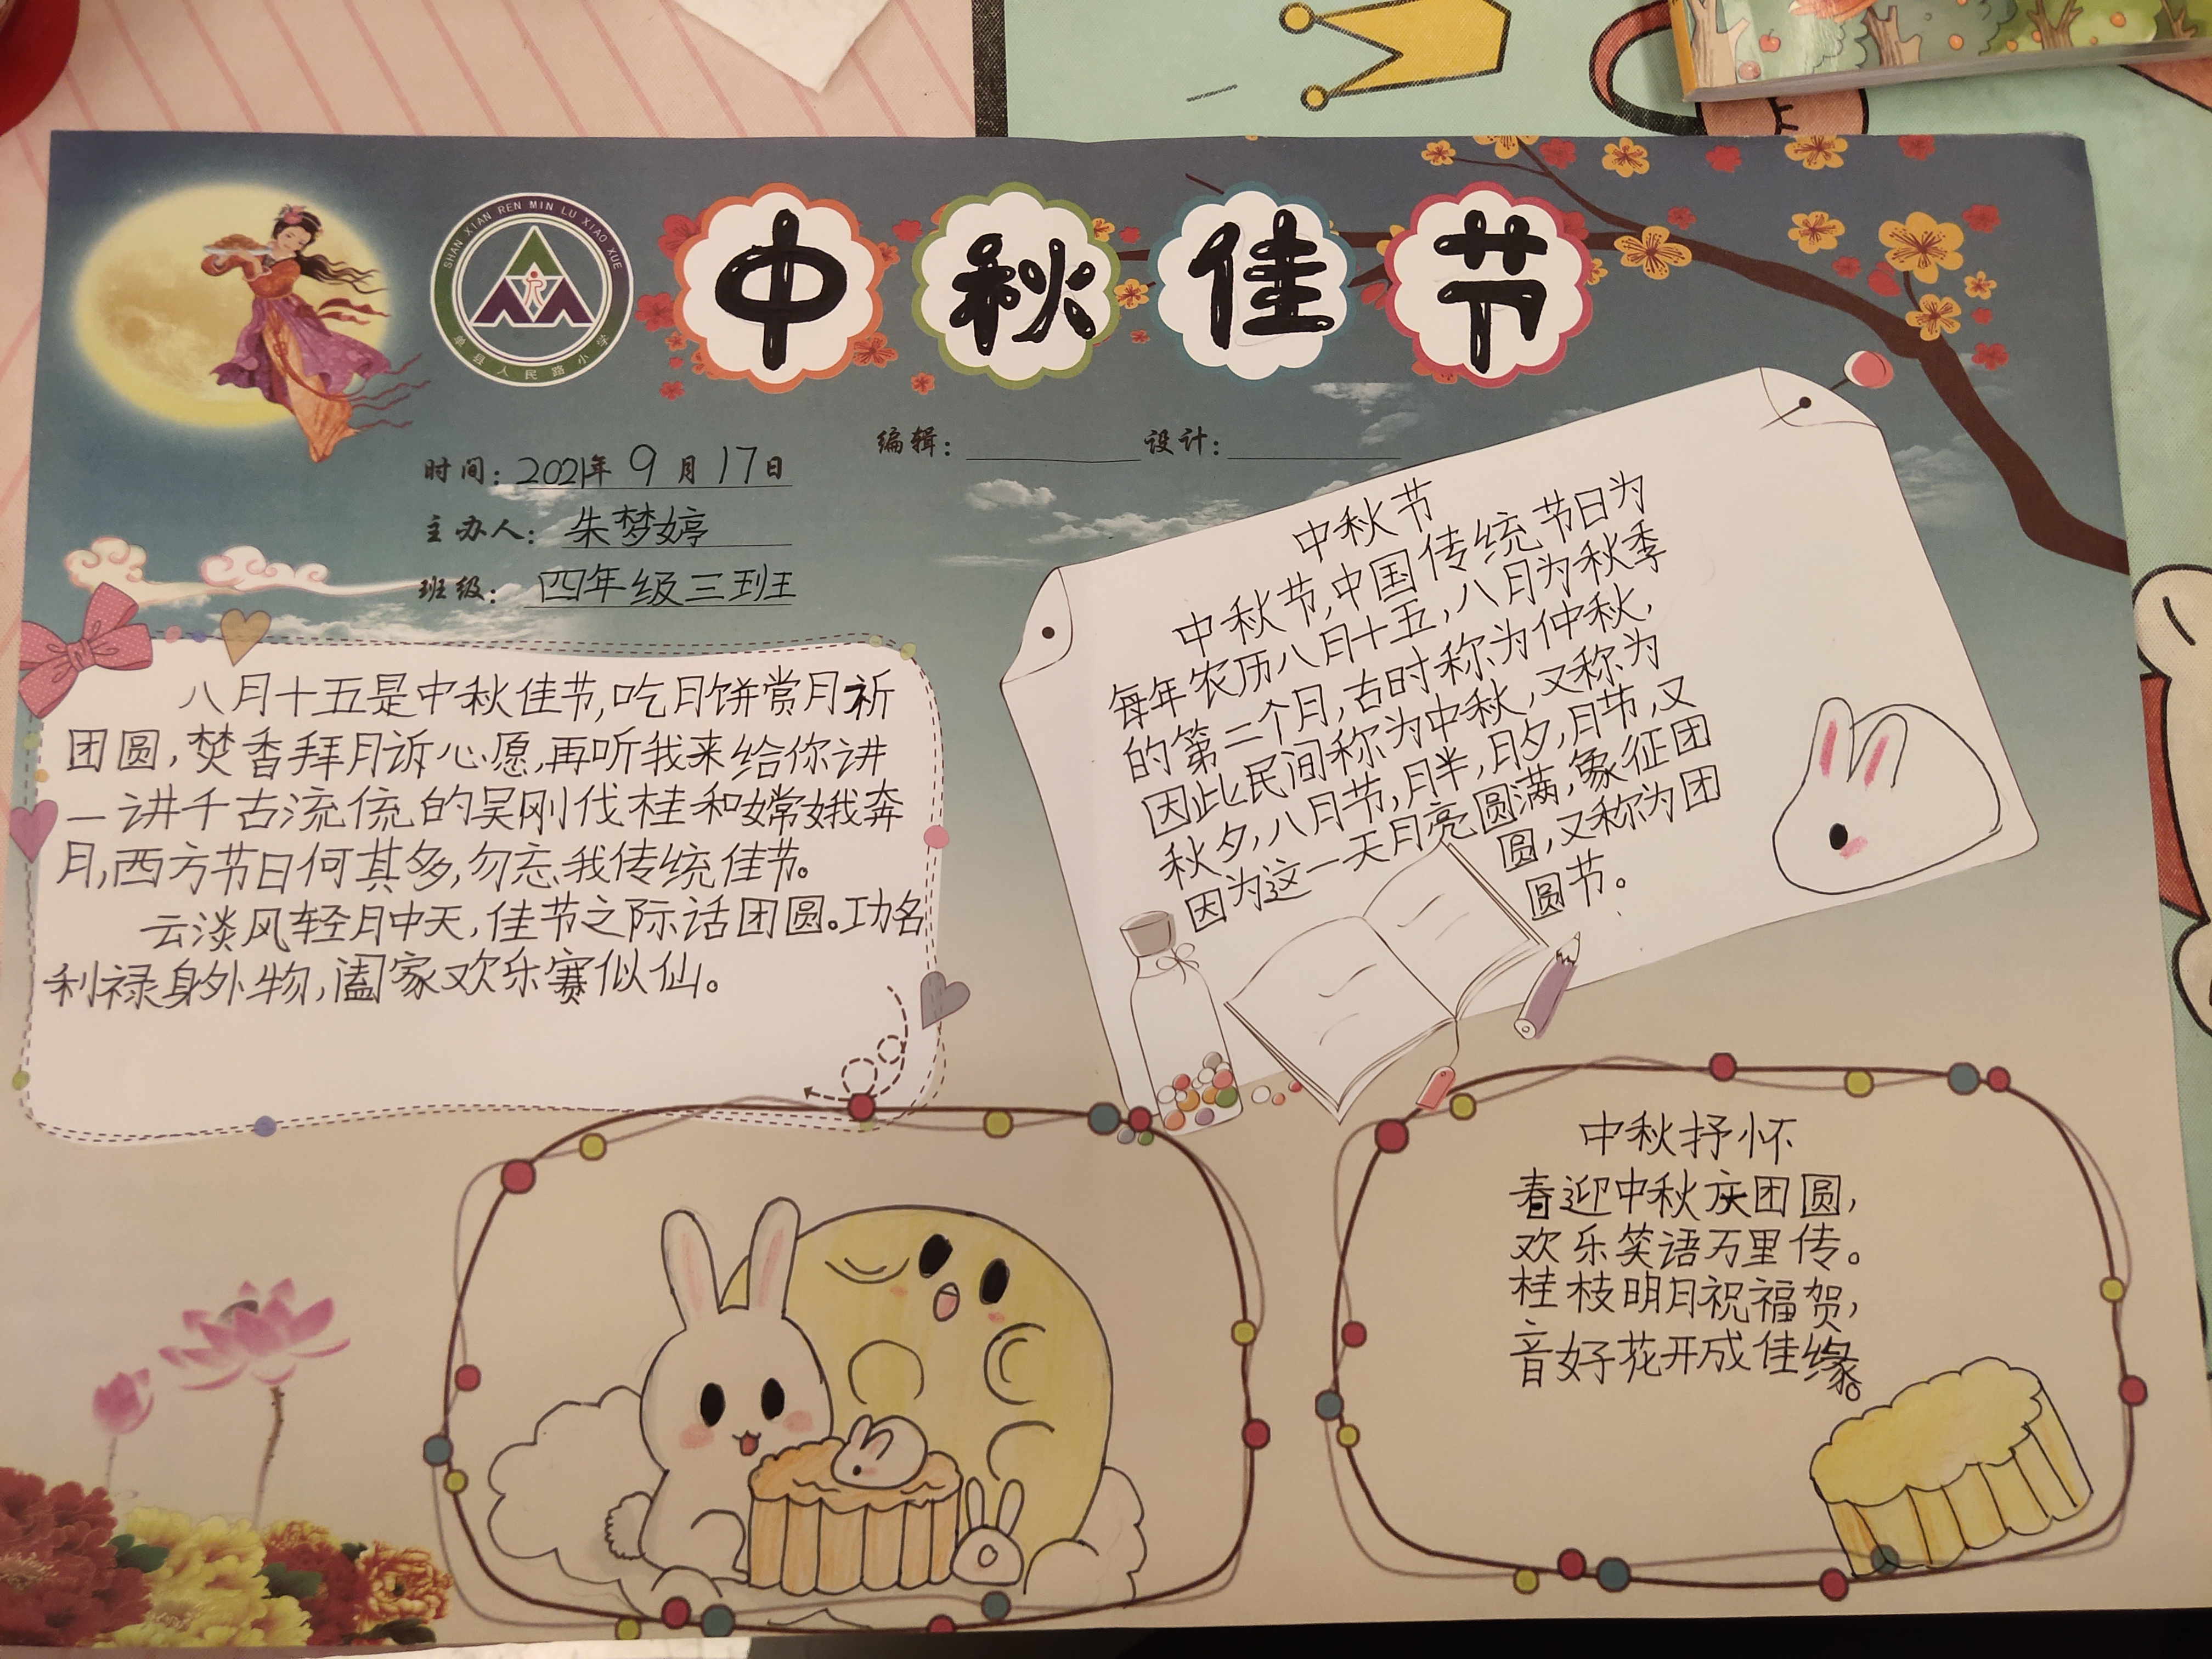 SHAN XIAN REN MIN LU XIAO XUE
单县人民路小学
中秋佳节
编辑: 设计:
时间: 2021年9月17日
主办人: 朱梦婷
班级: 四年级三班
八月十五是中秋佳节,吃月饼赏月祈
团圆,焚香拜月诉心愿,再听我来给你讲
一讲千古流传的吴刚伐桂和嫦娥奔
月,西方节日何其多,勿忘我传统佳节。
云淡风轻月中天,佳节之际话团圆。功名
利禄身外物,阖家欢乐赛似仙。
中秋节
中秋节,中国传统节日为
每年农历八月十五,八月为秋季
的第二个月,古时称为仲秋,
因此民间称为中秋,又称为
秋夕,八月节,月半,月夕,月节,又
因为这一天月亮圆满,象征团
圆,又称为团
圆节。
中秋抒怀
春迎中秋庆团圆,
欢乐笑语万里传。
桂枝明月祝福贺,
音好花开成佳缘。